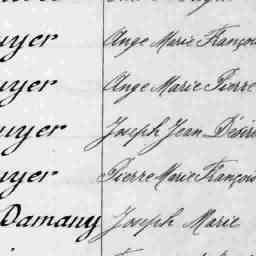 uyer Ange Marie François
uyer Ange Marie Pierre
uyer Joseph Jean Désiré
uyer Pierre Marie François
Damany Joseph Marie